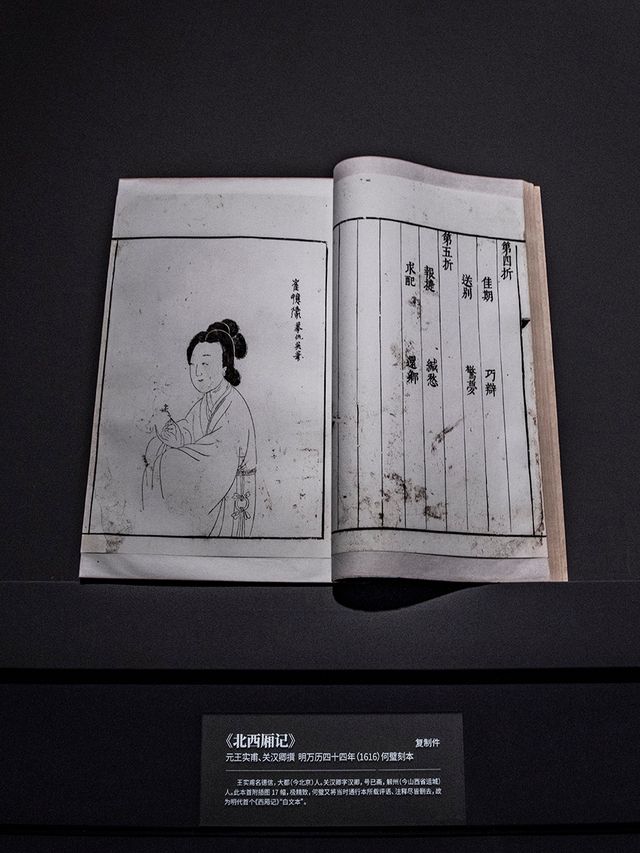 第四折
佳期 巧辯
送别 驚夢
第五折
報捷 緘愁
求配 還鄉
崔孃像 摹仇英筆
《北西厢记》 复制件
元王实甫、关汉卿撰 明万历四十四年（1616）何璧刻本
王实甫名德信，大都（今北京）人，关汉卿字汉卿，号已斋，解州（今山西省运城）
人。此本首附插图 17 幅，极精致，何璧又将当时通行本所载评语、注释尽皆删去，故
为明代首个《西厢记》“白文本”。